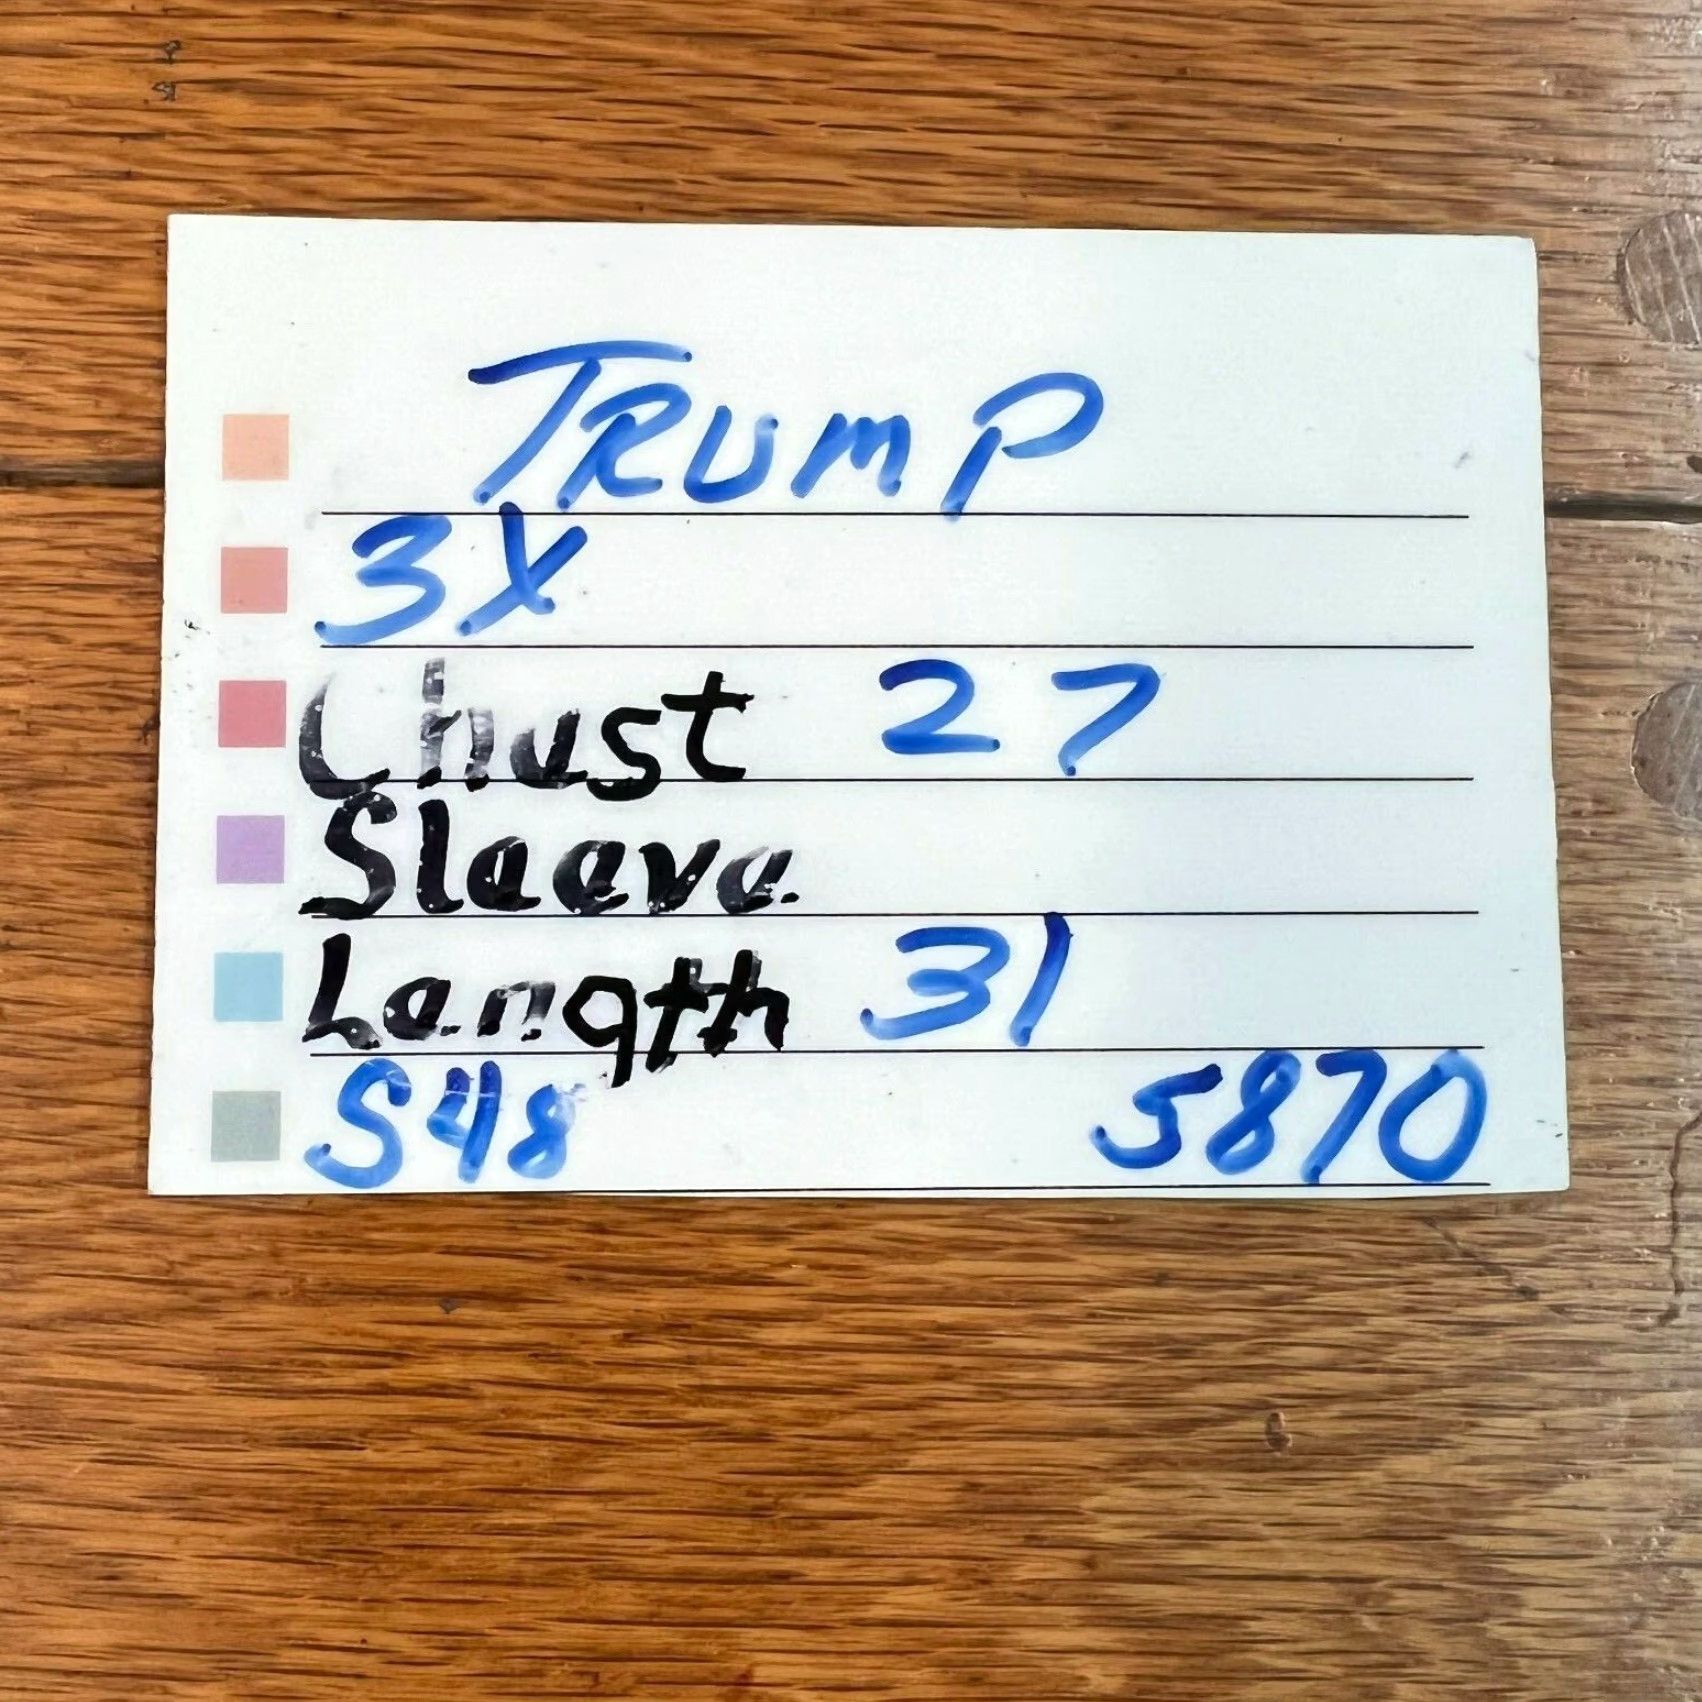 TRUMP
3X
Chest 27
Sleeve
Length 31
S48 5870